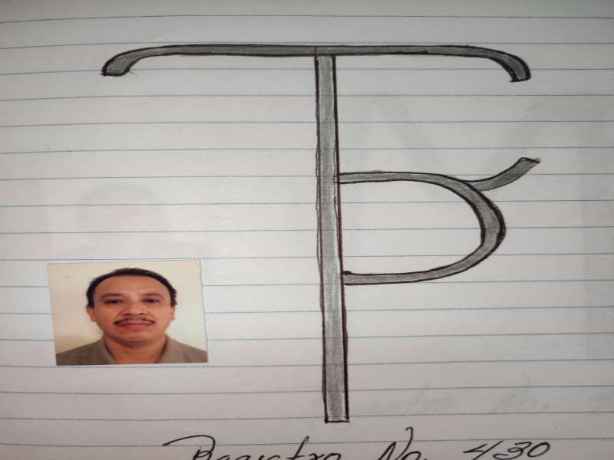 Registro No. 430